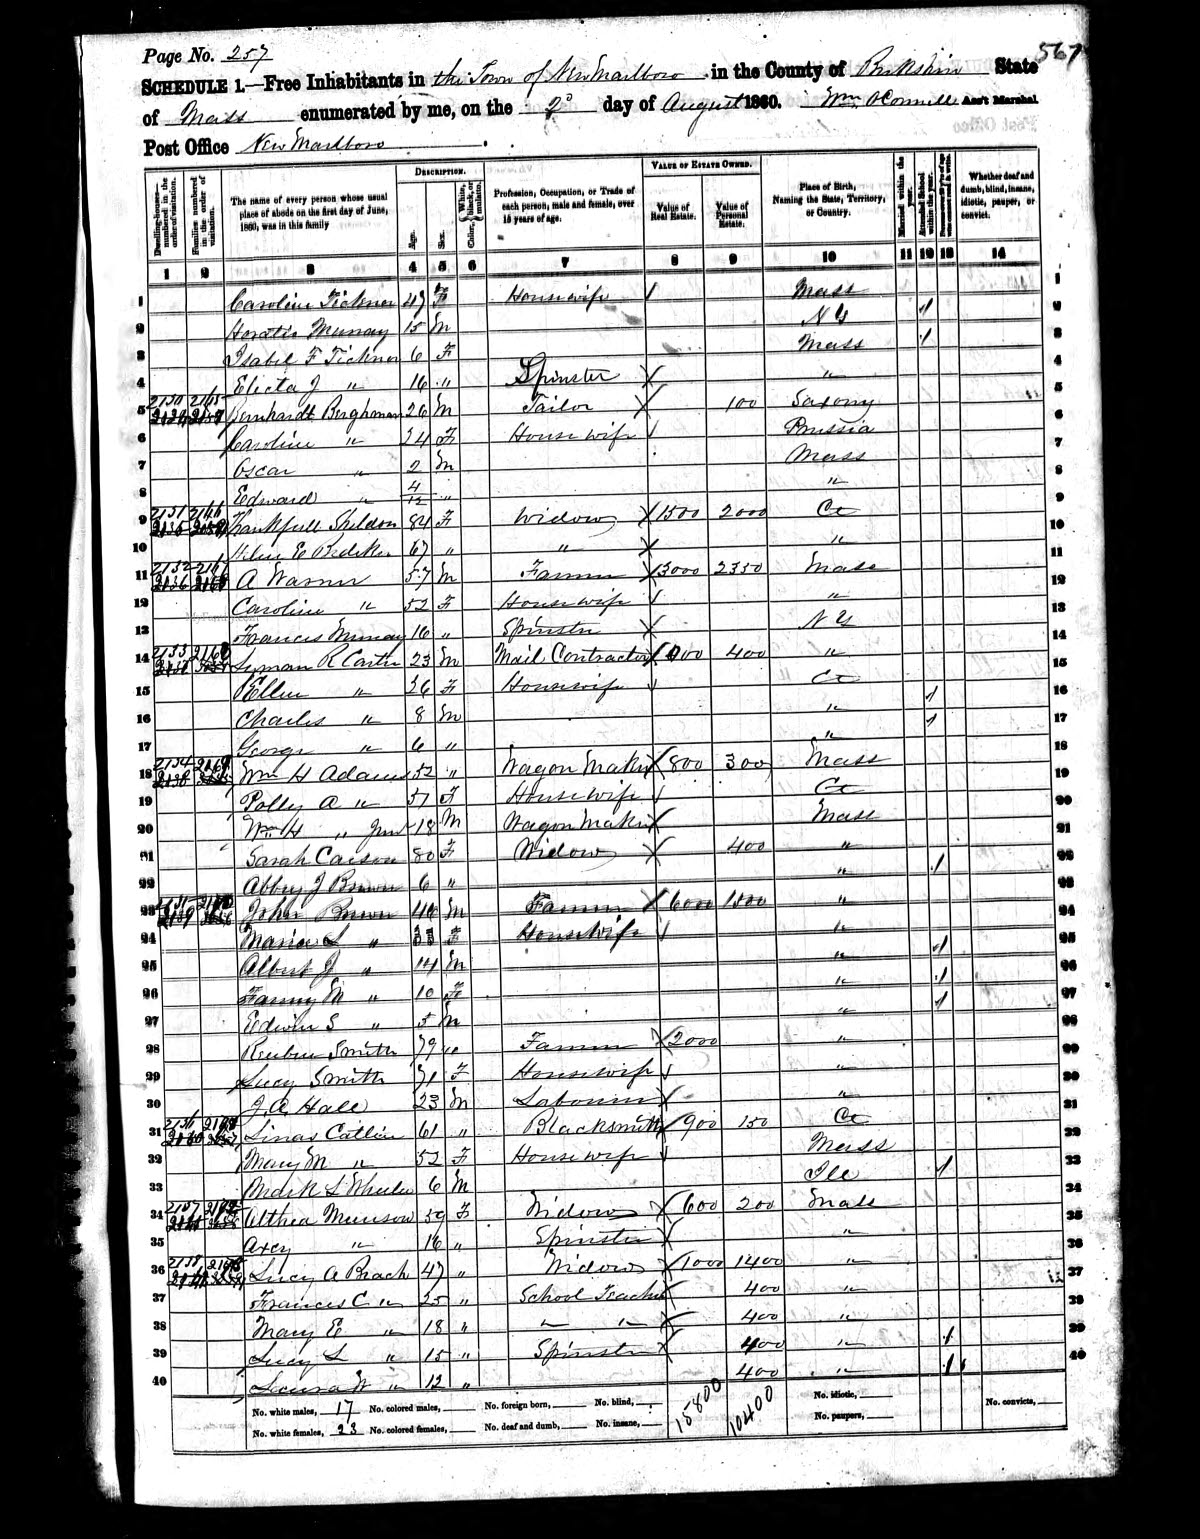 Page No. 257
567
SCHEDULE 1.—Free Inhabitants in the Town of New Marlboro in the County of Berkshire State
of Mass enumerated by me, on the 2d day of August 1860. Wm O'Connell Ass't Marshal
Post Office New Marlboro
DESCRIPTION. VALUE OF ESTATE OWNED.
Dwelling-houses—numbered in the order of visitation.
Families numbered in the order of visitation.
The name of every person whose usual place of abode on the first day of June, 1860, was in this family
Age.
Sex.
Color, White, black, or mulatto.
Profession, Occupation, or Trade of each person, male and female, over 15 years of age.
Value of Real Estate.
Value of Personal Estate.
Place of Birth, Naming the State, Territory, or Country.
Married within the year.
Attended School within the year.
Whether deaf and dumb, blind, insane, idiotic, pauper, or convict.
1 2 3 4 5 6 7 8 9 10 11 12 13 14
1 Caroline Ticknor 47 F Housewife Mass 1
2 Horatio Murray 15 M N Y / 2
3 Isabel F Ticknor 6 F Mass / 3
4 Electa J " 16 " Spinster " 4
5 2130 2165 Bernhardt Berghman 26 M Tailor 100 Saxony 5
6 Caroline " 24 F House wife Prussia 6
7 Oscar " 2 M Mass 7
8 Edward " 4/12 " " 8
9 2131 2166 Thankfull Sheldon 84 F Widow 1500 2000 Ct 9
10 Helen E 67 " " " 10
11 2132 2167 A Warner 57 M Farmer 3000 2350 Mass 11
12 Caroline " 52 F Housewife " 12
13 Frances Murray 16 " Spinster N Y 13
14 2133 2168 Lyman R Carter 23 M Mail Contractor 400 " 14
15 Ellen " 26 F Housewife Ct 15
16 Charles " 8 M " / 16
17 George " 6 " " / 17
18 2134 2169 Wm H Adams 52 " Wagon Maker 800 300 Mass 18
19 Polly A " 51 F Housewife Ct 19
20 Wm H " Jun 18 M Wagon Maker Mass 20
21 Sarah Carson 80 F Widow 400 " 21
22 Abbey J Brown 6 " " / 22
23 2135 2170 John Brown 46 M Farmer 6000 1500 " 23
24 Maria L " 33 F Housewife " 24
25 Albert J " 14 M " / 25
26 Fanny M " 10 F " / 26
27 Edwin S " 5 M " / 27
28 Reuben Smith 79 " Farmer 2000 " 28
29 Lucy Smith 71 F Housewife " 29
30 J. A Hall 23 M Laborer " 30
31 2136 2171 Linas Catlin 61 " Blacksmith 900 150 Ct 31
32 Mary M " 52 F House wife Mass 32
33 L Wheeler 6 M Ill / 33
34 2137 2172 Althea Munson 59 F Widow 600 200 Mass 34
35 Axey " 16 " Spinster " 35
36 2138 2173 Lucy A Beach 47 " Widow 1000 1400 " 36
37 Frances C " 25 " School Teacher 400 " 37
38 Mary E " 18 " " " 400 " 38
39 Lucy L " 15 " Spinster 400 " / 39
40 Laura W " 12 " 400 " / 40
No. white males, 17 No. colored males, No. foreign born, No. blind, 15800 10400 No. idiotic, No. convicts,
No. white females, 23 No. colored females, No. deaf and dumb, No. insane, No. paupers,